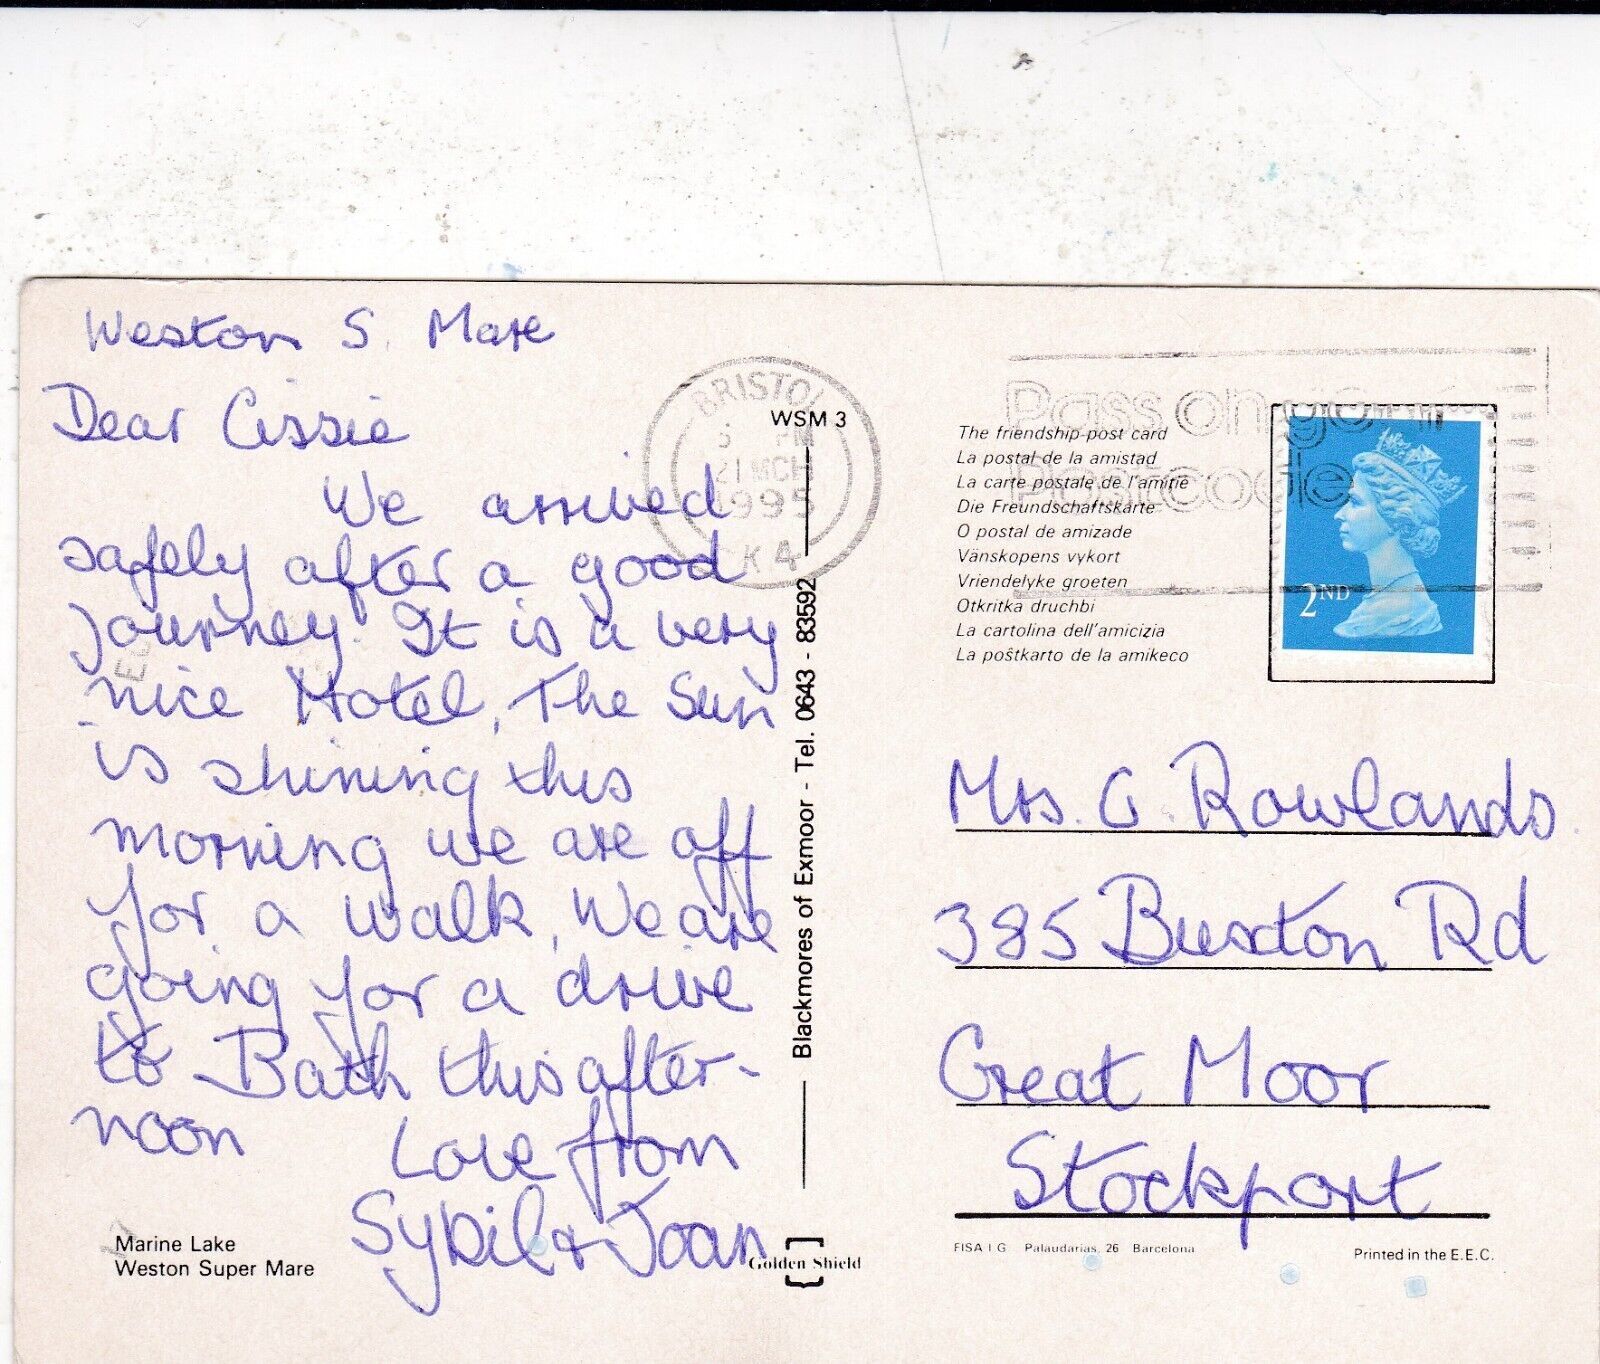 Weston S. Mare
Dear Cissie
We arrived
safely after a good
journey. It is a very
nice Hotel, The Sun
is shining this
morning we are off
for a walk, We are
going for a drive
to Bath this after-
noon
Love from
Sybil & Joan
Marine Lake
Weston Super Mare
BRISTOL
PM
21 MCH
1995
K 4
WSM 3
Blackmores of Exmoor - Tel. 0643 - 83592
Golden Shield
Pass on your
Postcode
The friendship post card
La postal de la amistad
La carte postale de l'amitié
Die Freundschaftskarte
O postal de amizade
Vänskopens vykort
Vriendelyke groeten
Otkritka druchbi
La cartolina dell'amicizia
La poŝtkarto de la amikeco
2ND
Mrs. C. Rowlands
385 Buxton Rd
Great Moor
Stockport
FISA I G Palaudarias, 26 Barcelona
Printed in the E.E.C.